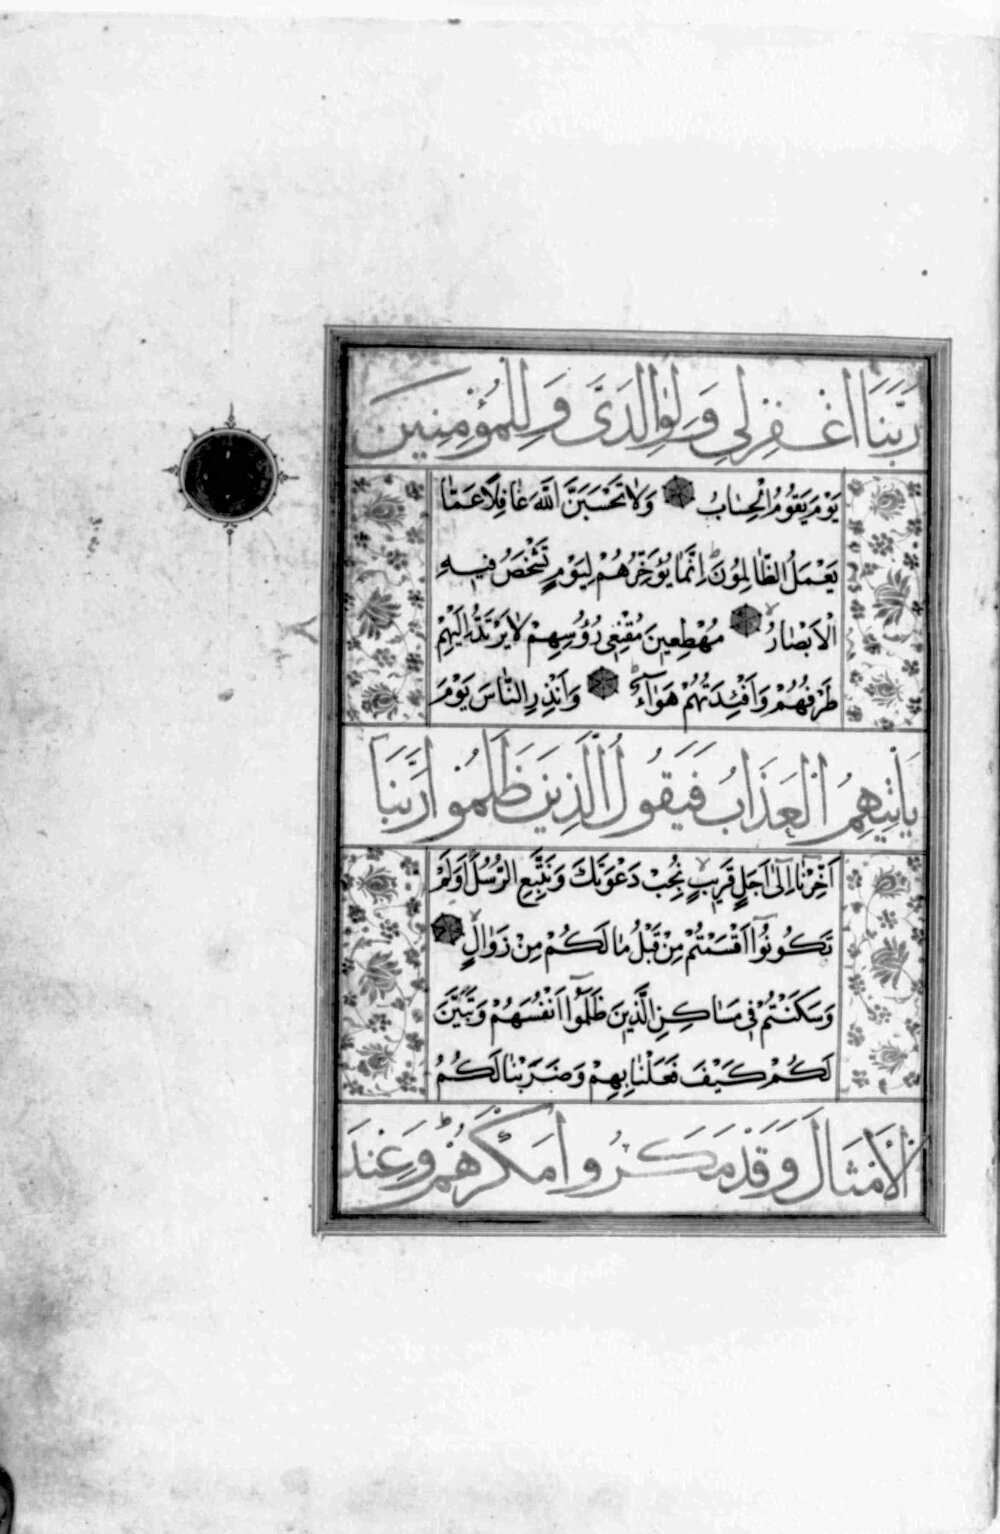 رَبَّنَا اغْفِرْ لِي وَلِوَالِدَيَّ وَلِلْمُؤْمِنِينَ
يَوْمَ يَقُومُ الْحِسَابُ وَلَا تَحْسَبَنَّ اللَّهَ غَافِلًا عَمَّا
يَعْمَلُ الظَّالِمُونَ اِنَّمَا يُؤَخِّرُهُمْ لِيَوْمٍ تَشْخَصُ فِيهِ
الْاَبْصَارُ مُهْطِعِينَ مُقْنِعِي رُؤُسِهِمْ لَا يَرْتَدُّ اِلَيْهِمْ
طَرْفُهُمْ وَاَفْئِدَتُهُمْ هَوَآءٌ وَاَنْذِرِ النَّاسَ يَوْمَ
يَاْتِيهِمُ الْعَذَابُ فَيَقُولُ الَّذِينَ ظَلَمُوا رَبَّنَا
اَخِّرْنَا اِلٰٓى اَجَلٍ قَرِيبٍ نُجِبْ دَعْوَتَكَ وَنَتَّبِعِ الرُّسُلَ اَوَلَمْ
تَكُونُوٓا اَقْسَمْتُمْ مِنْ قَبْلُ مَا لَكُمْ مِنْ زَوَالٍ
وَسَكَنْتُمْ فِي مَسَاكِنِ الَّذِينَ ظَلَمُوٓا اَنْفُسَهُمْ وَتَبَيَّنَ
لَكُمْ كَيْفَ فَعَلْنَا بِهِمْ وَضَرَبْنَا لَكُمُ
الْاَمْثَالَ وَقَدْ مَكَرُوا مَكْرَهُمْ وَعِنْدَ